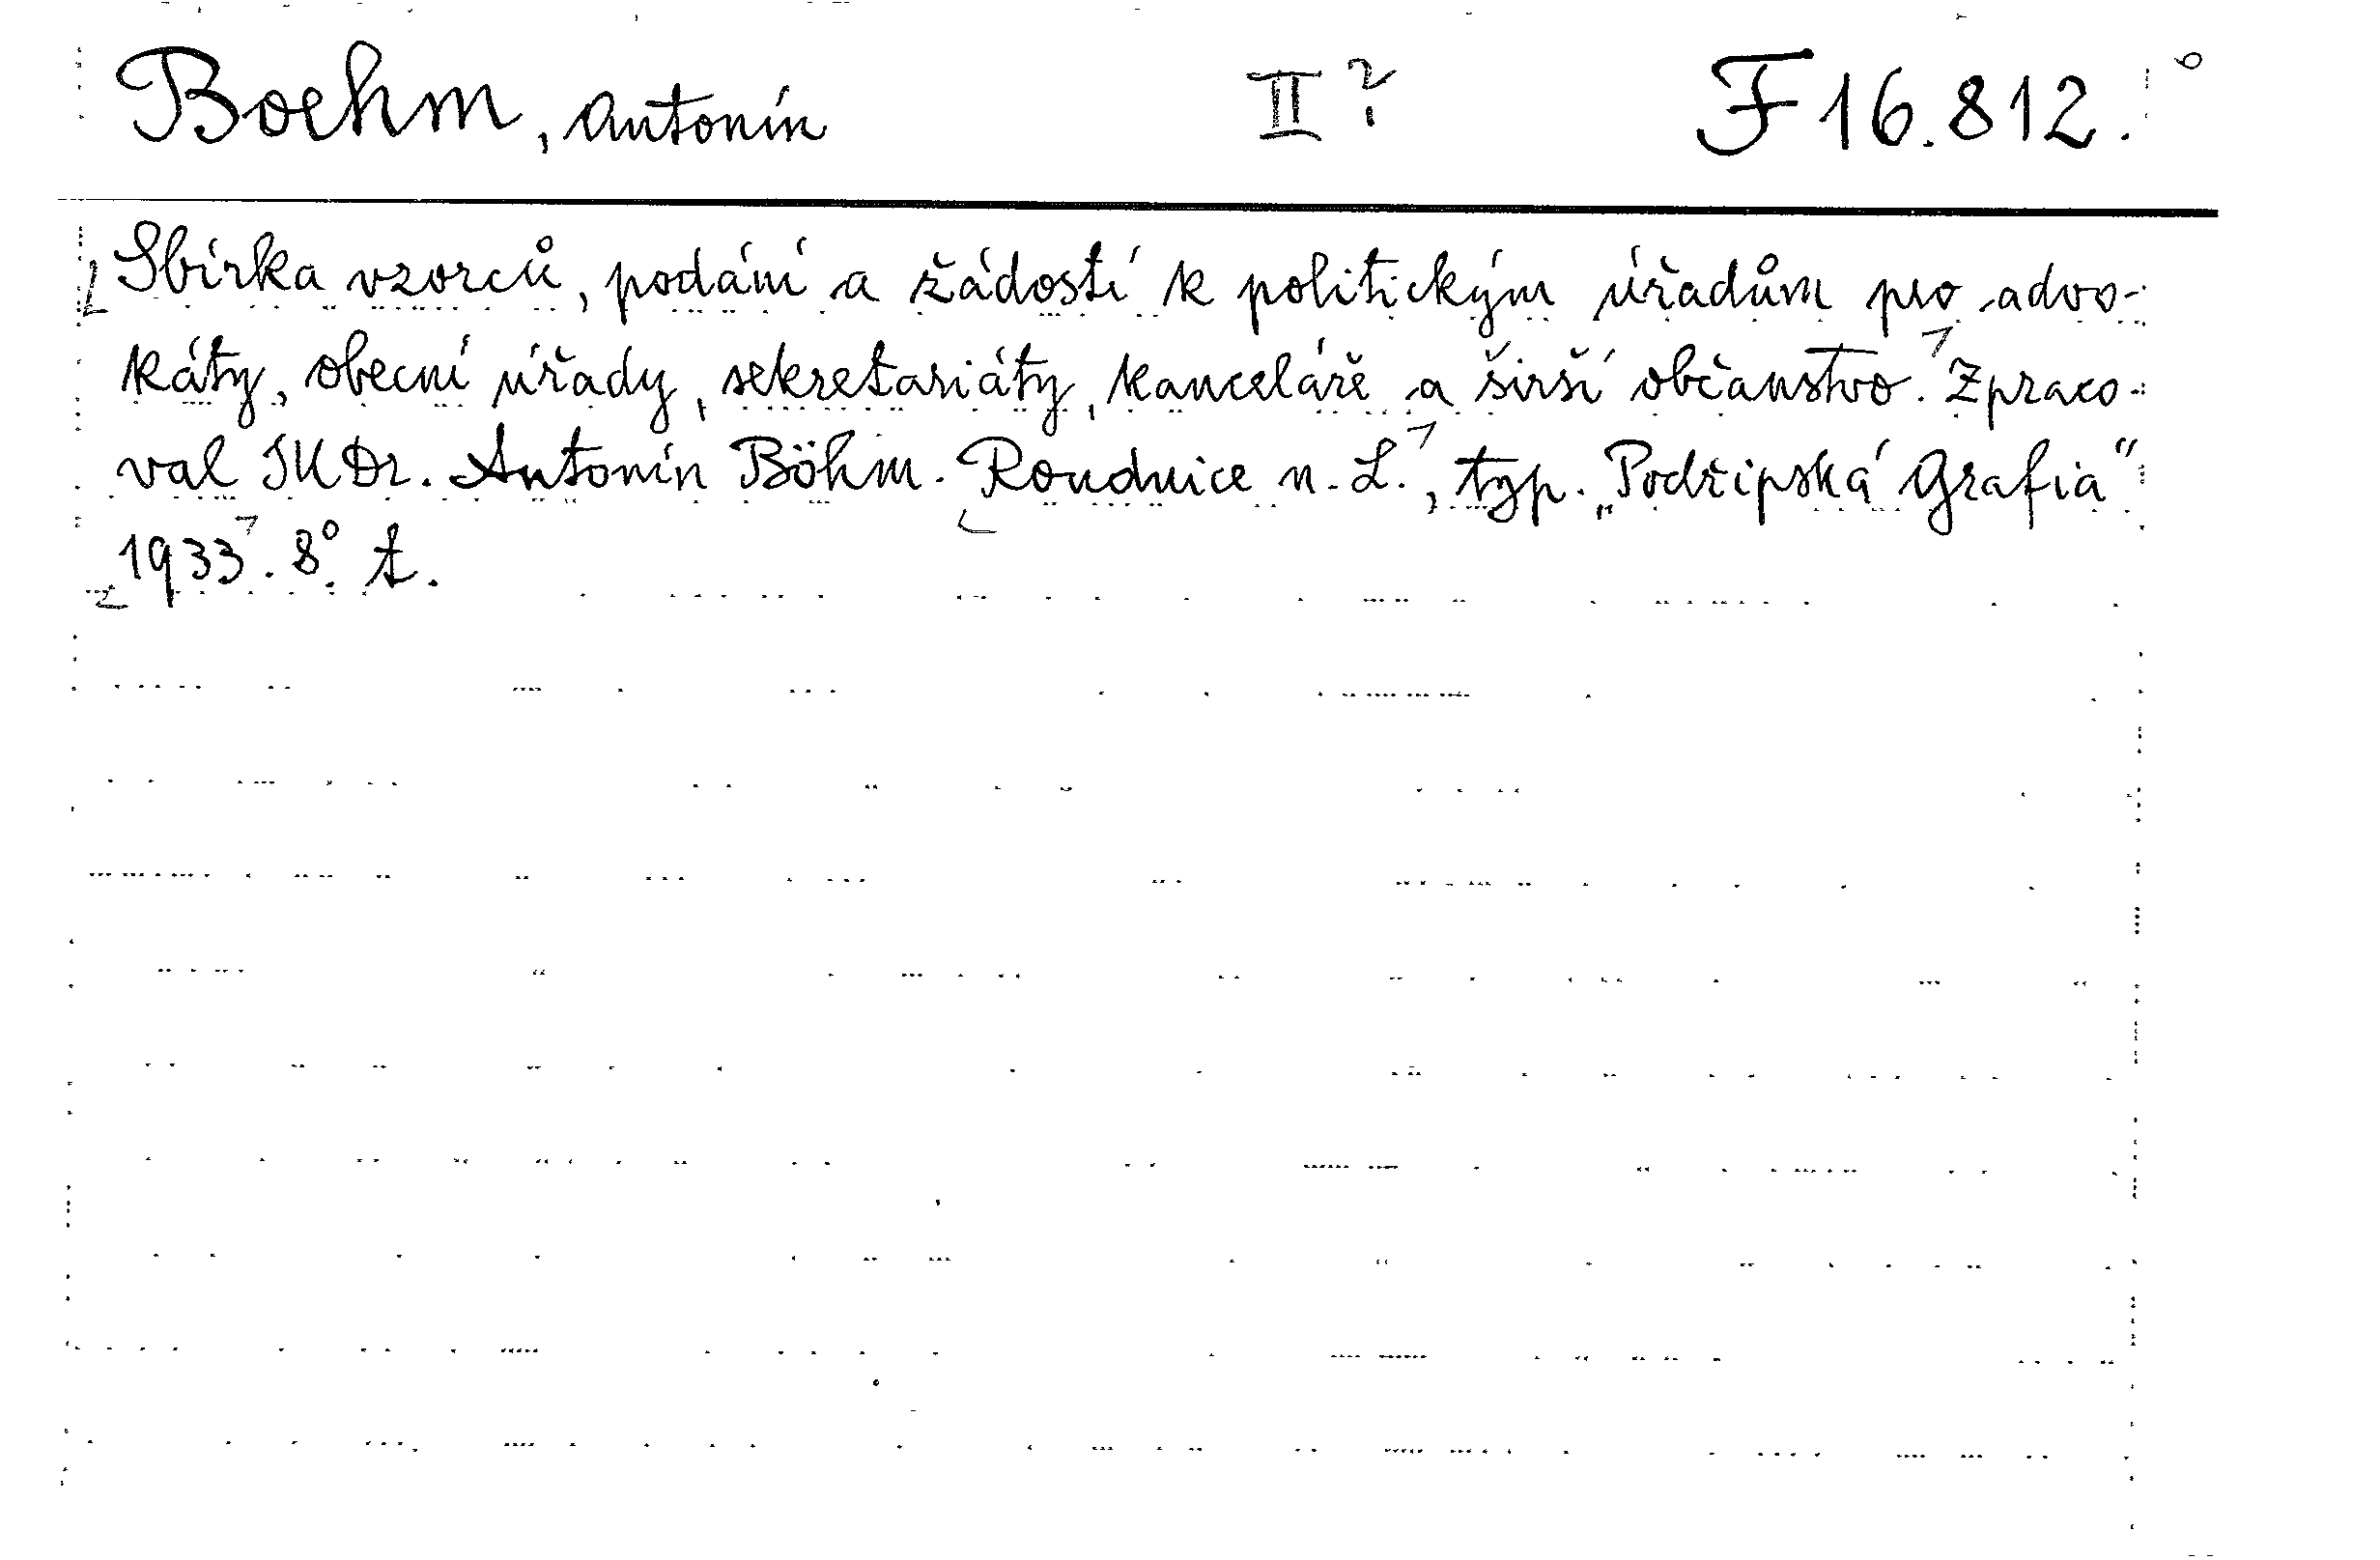 Boehm, Antonín II? F 16.812.
Sbírka vzorců, podání a žádostí k politickým úřadům pro advo-
káty, obecní úřady, sekretariáty, kanceláře a širší občanstvo. Zpraco-
val JUDr. Antonín Böhm. Roudnice n. L., typ. „Podřipská Grafia"
1933. 8°. t.